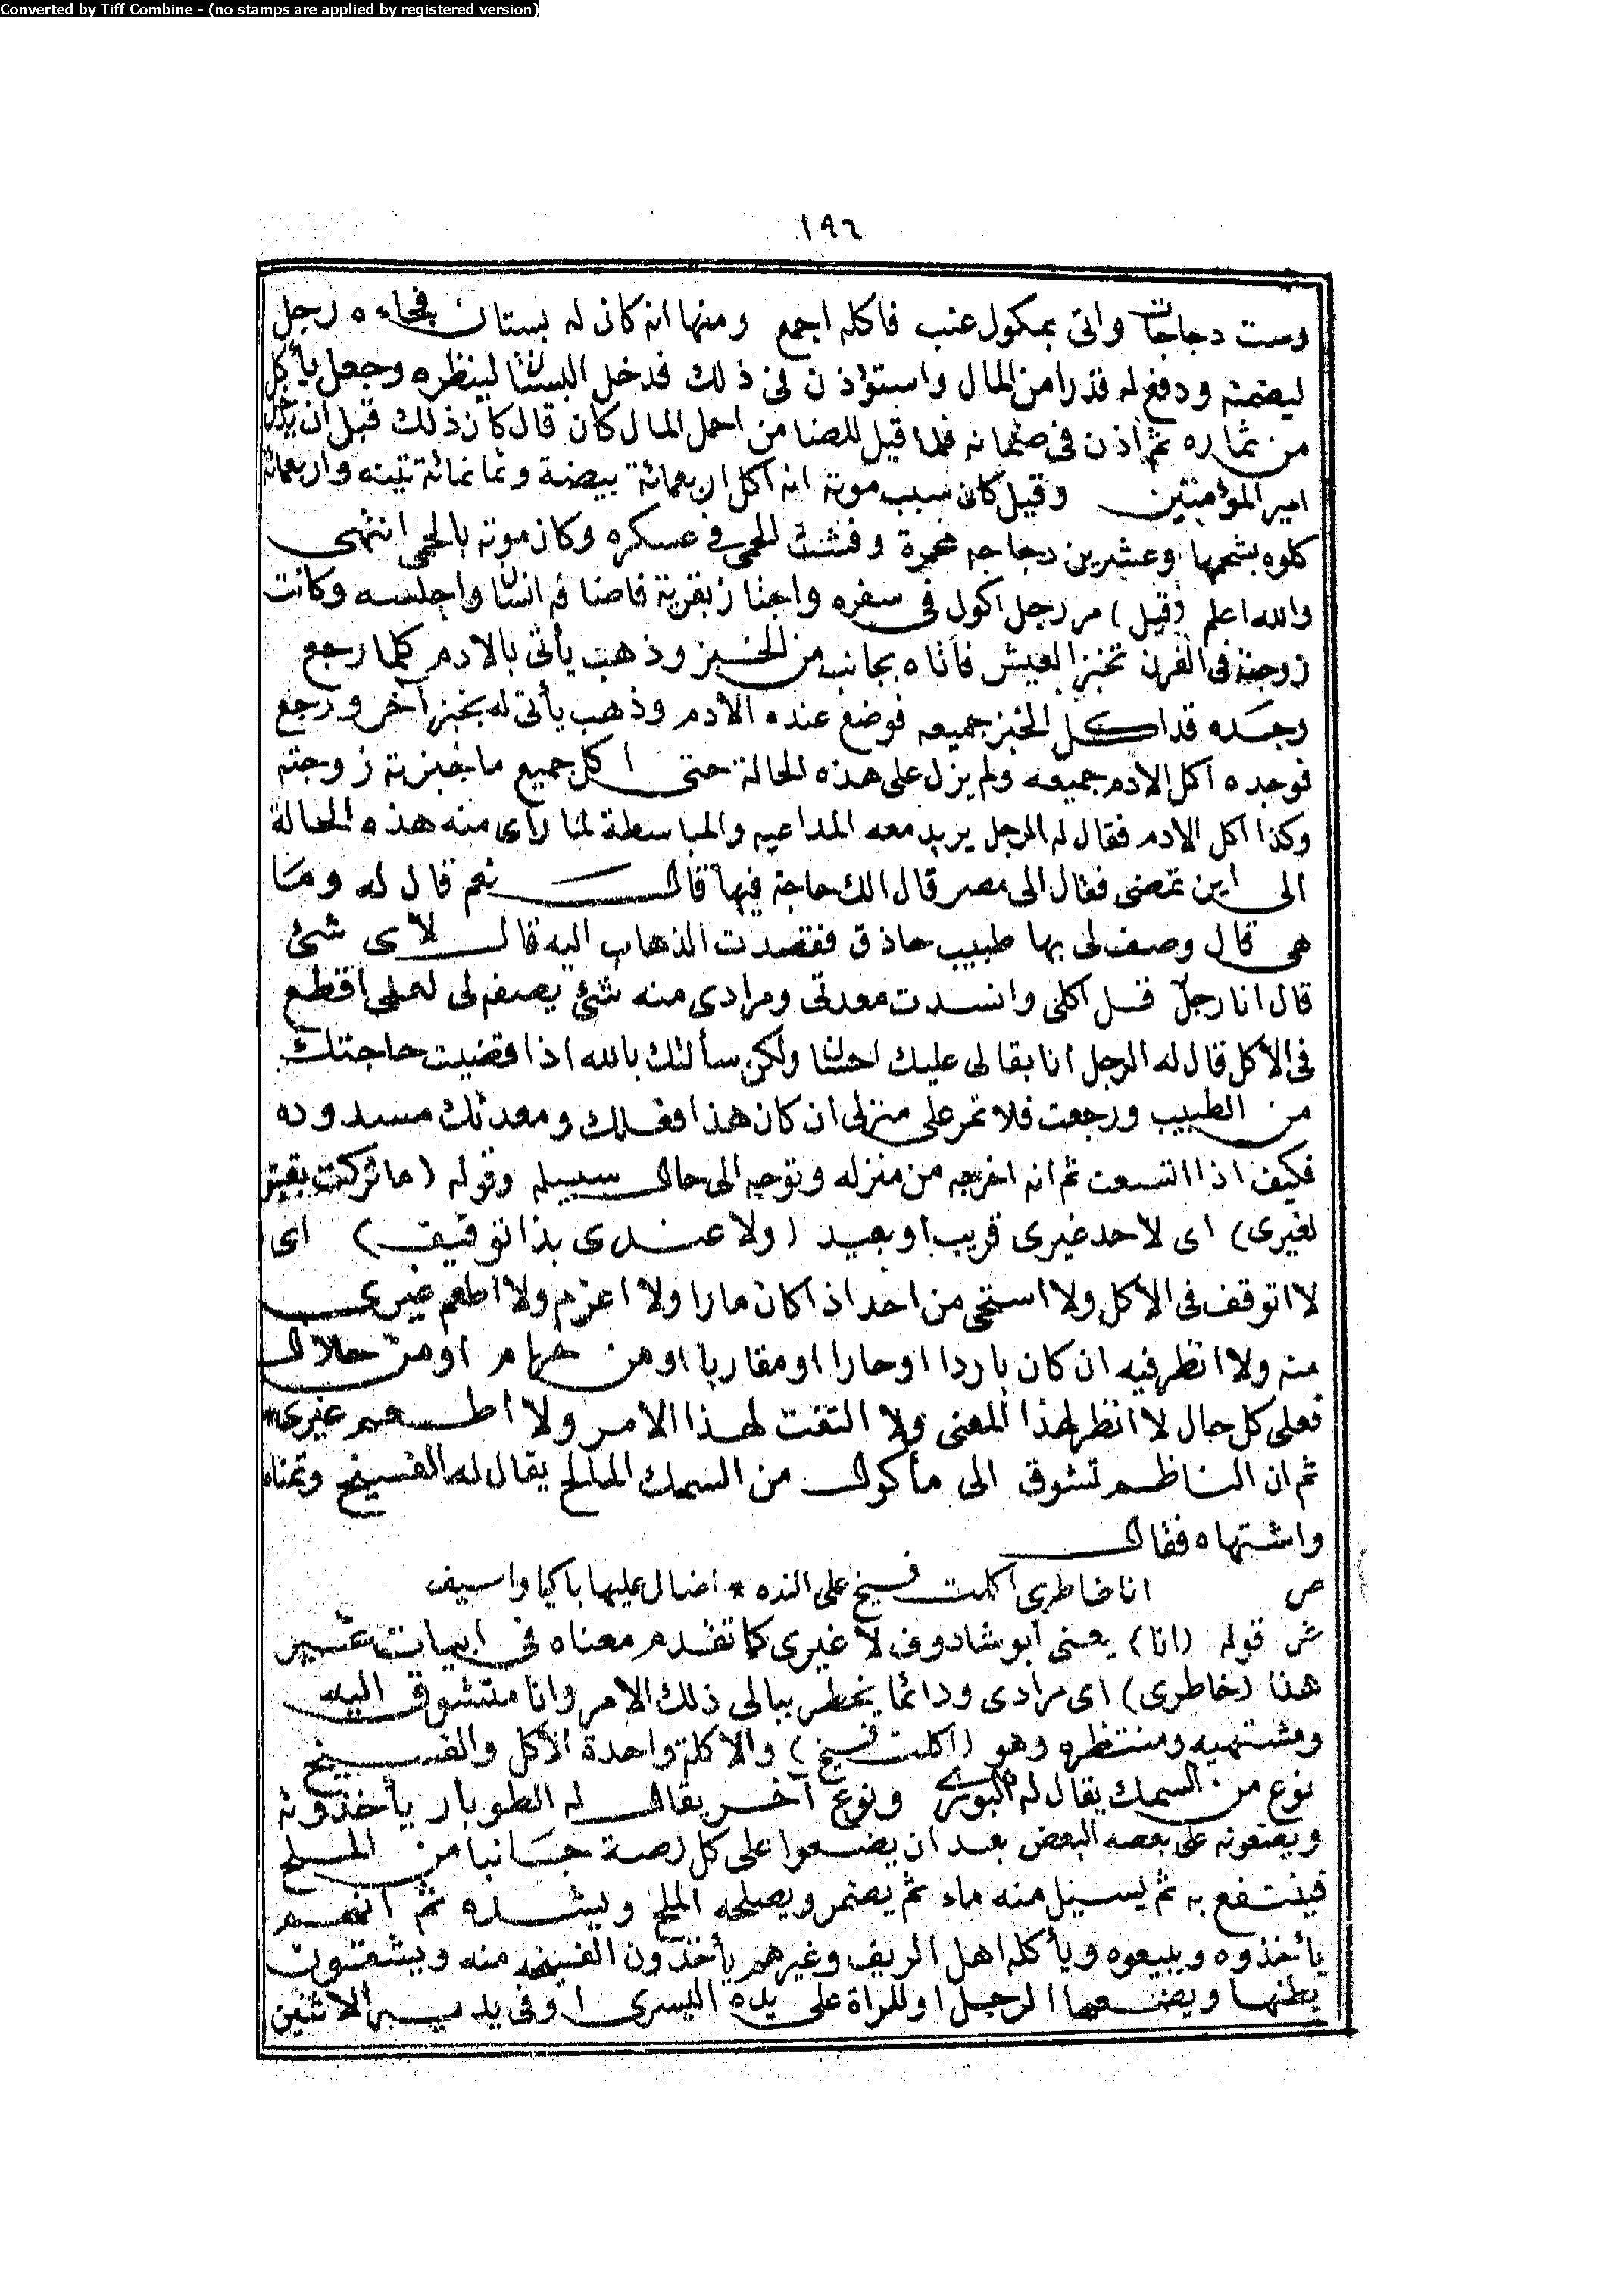 Converted by Tiff Combine - (no stamps are applied by registered version)
١٩٦
وست دجاجات واتى بمكول عنب فاكله اجمع ومنها انه كان له بستان فجاءه رجل
ليضمنه ودفع له قدرا من المال واستؤذن فى ذلك فدخل البستان لينظره وجعل يأكل
من ثماره ثم اذن فى ضمانه فلما قيل للضامن احمل المال كان قال كان ذلك قبل ان يدخل
امير المؤمنين وقيل كان سبب موته انه اكل اربعمائة بيضة وثمانمائة تينه واربعمائة
كلوه بشحمها وعشرين دجاجه محمرة وفشت الحمى فى عسكره وكان موته بالحمى انتهى
والله اعلم (وقيل) مر رجل اكول فى سفره واجتاز بقرية فاضافه انسان واجلسه وكانت
زوجته فى الفرن تخبز العيش فاتاه بجانب من الخبز وذهب يأتى بالادم كلما رجع
وجده قد اكل الخبز جميعه فوضع عنده الادم وذهب يأتى له بخبز آخر ورجع
فوجده اكل الادم جميعه ولم يزل على هذه الحالة حتى اكل جميع ما خبزته زوجته
وكذا اكل الادم فقال له الرجل يريد معه المداعبه والمباسطة لما رأى منه هذه الحالة
الى اين تمضى فقال الى مصر قال الك حاجة فيها قال نعم قال له وما
هى قال وصف لى بها طبيب حاذق فقصدت الذهاب اليه قال لاى شئ
قال انا رجل قل اكلى وانسدت معدتى ومرادى منه شئ يصفه لى لعلى اقطع
فى الأكل قال له الرجل انا بقا لى عليك احسان ولكن سألتك بالله اذا قضيت حاجتك
من الطبيب ورجعت فلا تمر على منزلى ان كان هذا فعلك ومعدتك مسدوده
فكيف اذا اتسعت ثم انه اخرجه من منزله وتوجه الى حال سبيله وقوله (ما تركت بقيتو
لغيرى) اى لاحد غيرى قريب او بعيد (ولا عندى بذا توقيف) اى
لا اتوقف فى الأكل ولا استحى من احد اذا كان مارا ولا اعزم ولا اطعم غيرى
منه ولا انظر فيه ان كان باردا او حارا او مقاربا او من حرام او من حلال
فعلى كل حال لا انظر لهذا المعنى ولا التفت لهذا الامر ولا اطعم غيرى*
ثم ان الناظم تشوق الى مأكول من السمك المالح يقال له الفسيخ وتمناه
واشتهاه فقال
ص انا خاطرى اكلت فسيخ على النده * اضال عليها باكيا واسيف
ش قوله (انا) يعنى ابو شادوف لا غيرى كما تقدم معناه فى ابيات غير
هذا (خاطرى) اى مرادى ودائما يخطر ببالى ذلك الامر وانا متشوق اليه
ومشتهيه ومنتظره وهو (اكلت فسيخ) والاكلة واحدة الأكل والفسيخ
نوع من السمك يقال له البورى ونوع آخر يقال له الطوبار يأخذونه
ويضعونه على بعضه البعض بعد ان يضعوا على كل رصة جانبا من الملح
فينتفع به ثم يسيل منه ماء ثم يضمر ويصلحه الملح ويشده ثم انهم
يأخذوه ويبيعوه ويأكله اهل الريف وغيرهم يأخذون الفسيخه منه ويشقون
بطنها ويضعها الرجل او المراة على يده اليسرى او فى يد الاثنين